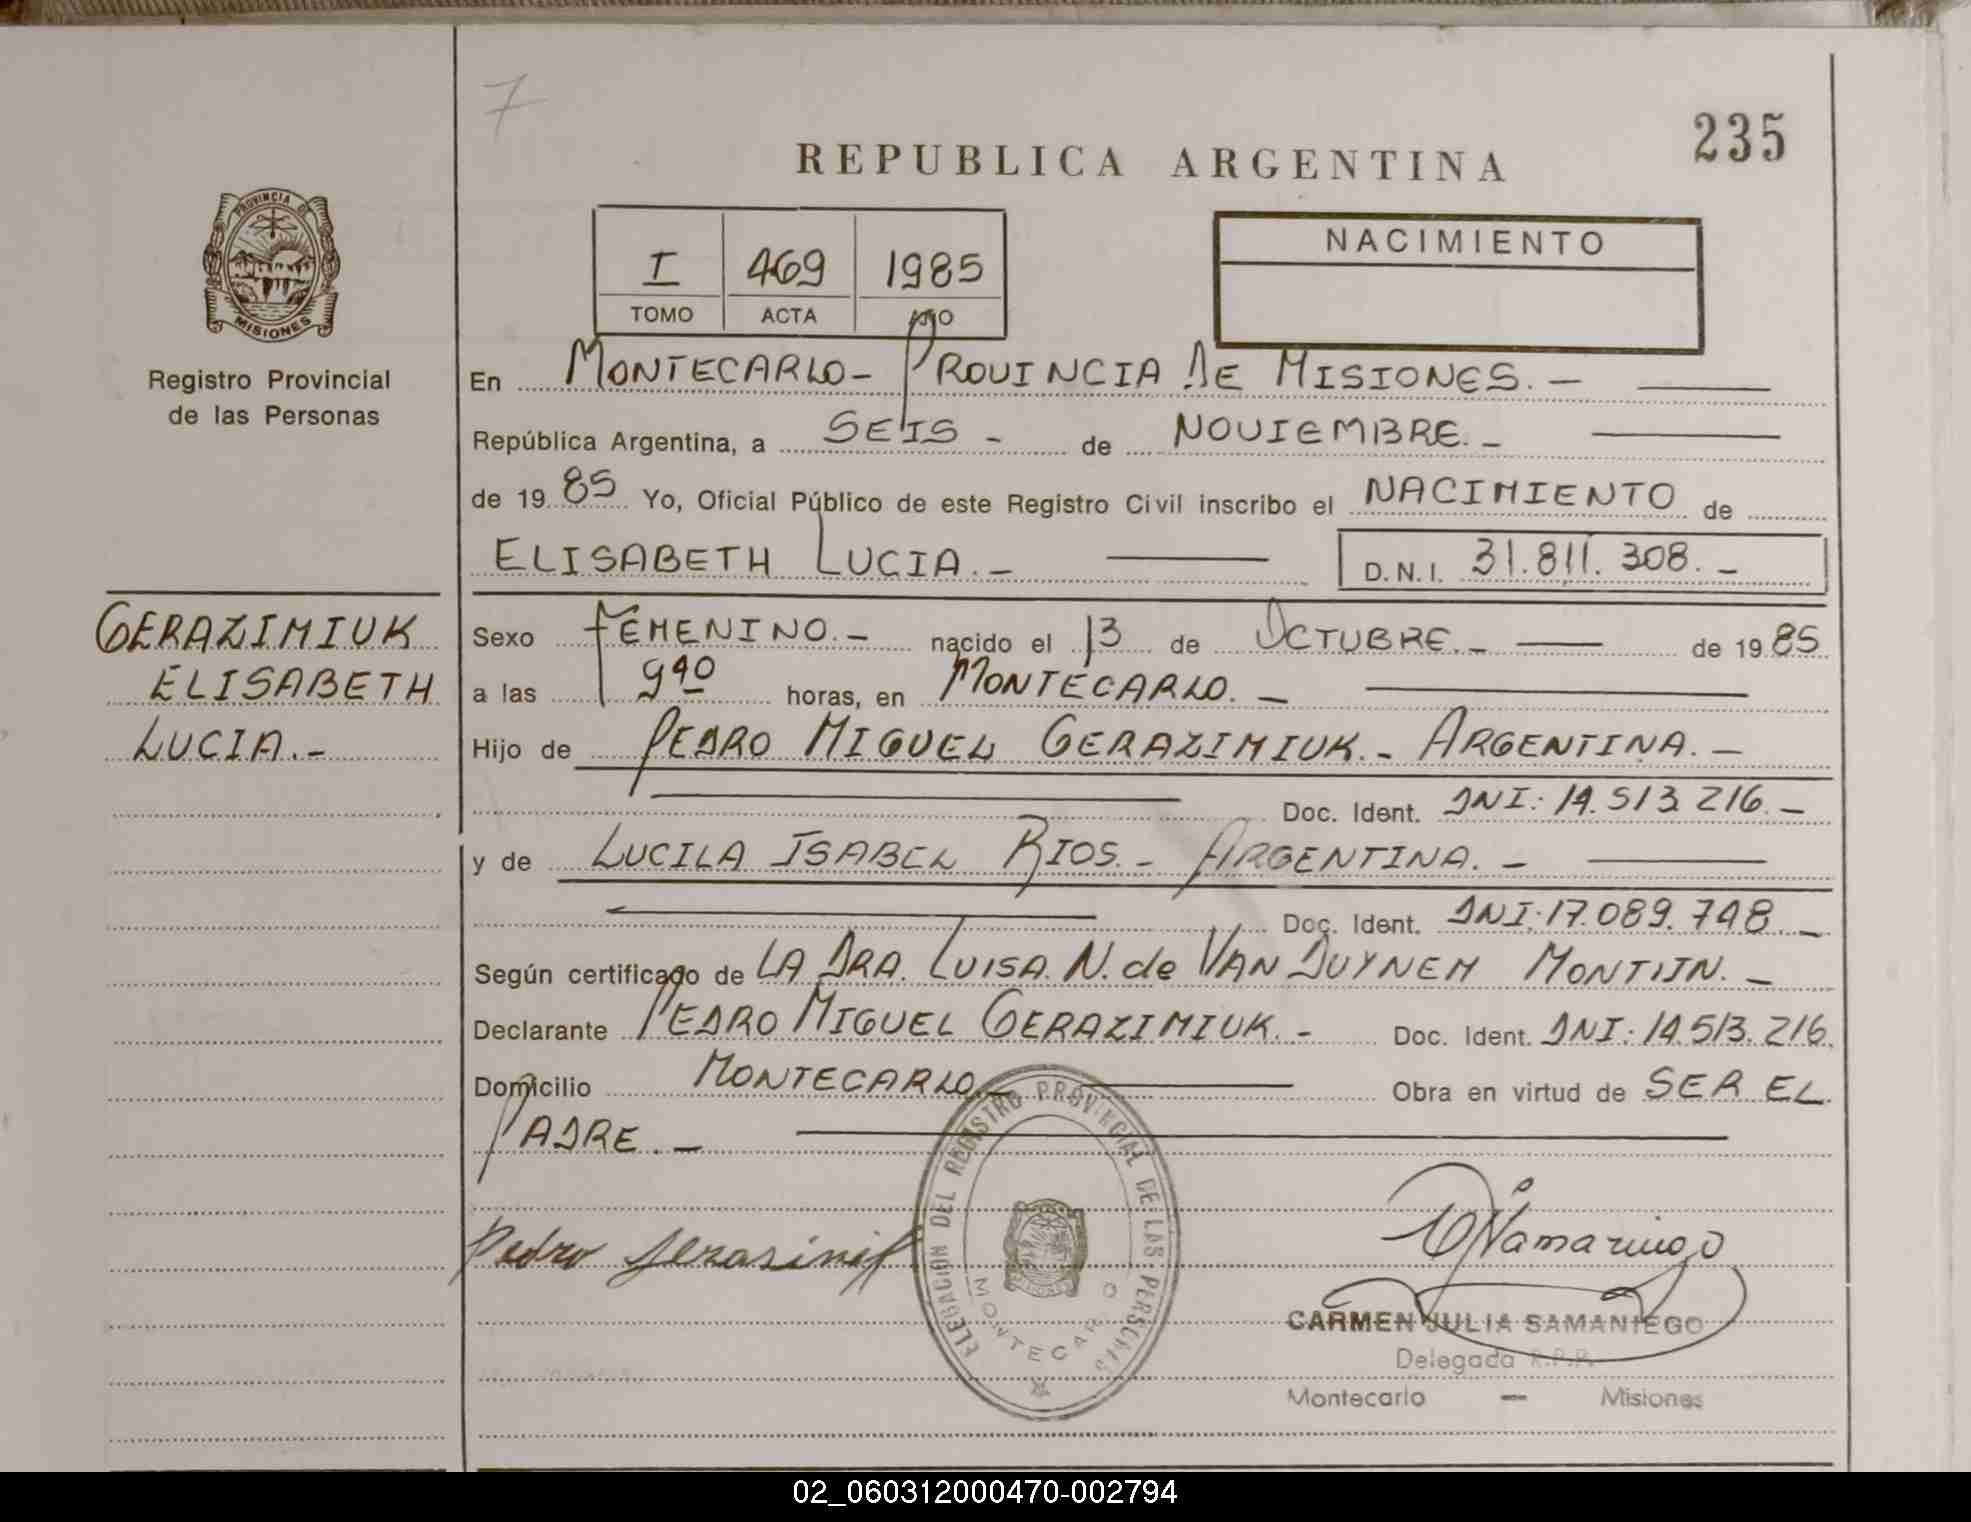 7
235
REPUBLICA ARGENTINA
PROVINCIA DE
MISIONES
Registro Provincial
de las Personas
I 469 1985
TOMO ACTA AÑO
NACIMIENTO
En MONTECARLO - PROVINCIA DE MISIONES. -
República Argentina, a SEIS - de NOVIEMBRE. -
de 1985 Yo, Oficial Público de este Registro Civil inscribo el NACIMIENTO de
ELISABETH LUCIA. - D.N.I. 31.811.308. -
GERAZIMIUK
ELISABETH
LUCIA. -
Sexo FEMENINO. - nacido el 13 de OCTUBRE. - de 1985
a las 9 40 horas, en MONTECARLO. -
Hijo de PEDRO MIGUEL GERAZIMIUK. - ARGENTINA. -
Doc. Ident. DNI: 14.513.216. -
y de LUCILA ISABEL RIOS. - ARGENTINA. -
Doc. Ident. DNI: 17.089.748 -
Según certificado de LA DRA. LUISA. N. de VAN DUYNEM MONTIJN. -
Declarante PEDRO MIGUEL GERAZIMIUK. - Doc. Ident. DNI: 14.513.216.
Domicilio MONTECARLO. - Obra en virtud de SER EL
PADRE. -
DELEGACION DEL REGISTRO PROVINCIAL DE LAS PERSONAS
MONTECARLO
MISIONES
Pedro
CARMEN JULIA SAMANIEGO
Delegada R.P.P.
Montecarlo - Misiones
02_060312000470-002794